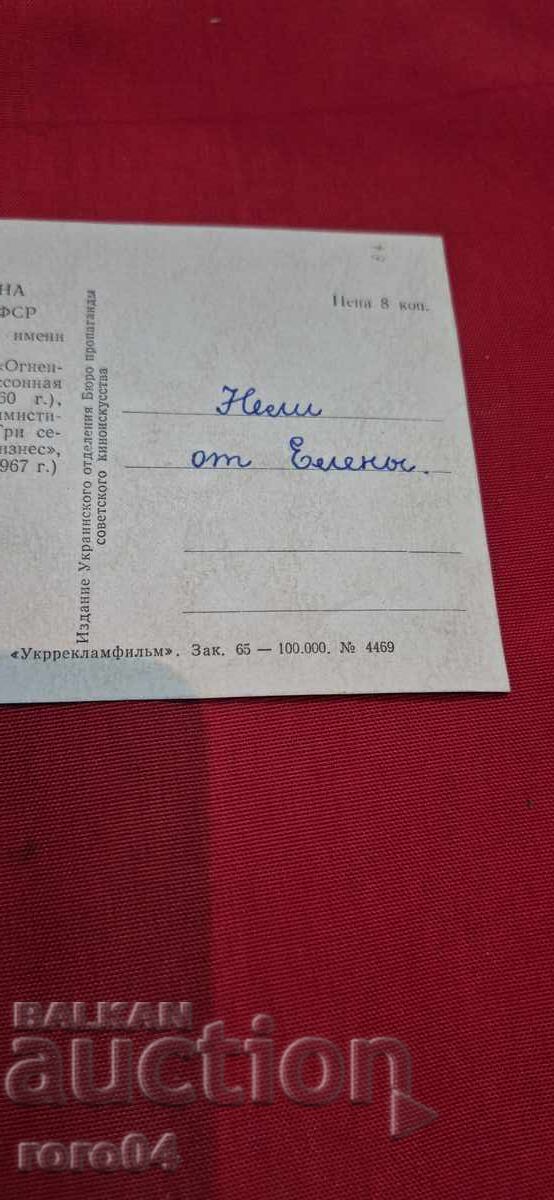 НА
ФСР
имени
«Огнен-
ссонная
60 г.),
имисти-
Три се-
изнес»,
967 г.)
Издание Украинского отделения Бюро пропаганды
советского киноискусства
Цена 8 коп.
Нели
от Елены.
«Укррекламфильм». Зак. 65 — 100.000. № 4469
BALKAN
auction
roro04